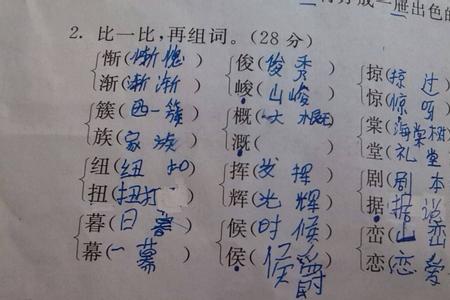 成一册出色的
2. 比一比,再组词。(28 分)
惭(惭愧) 俊(俊秀) 掠(掠过
渐(渐渐) 峻(山峻) 惊(惊呀
簇(一簇) 概(大概) 棠(海棠树
族(家族) 溉( ) 堂(礼堂
纽(纽扣) 挥(发挥) 剧(剧本
扭(扭打) 辉(光辉) 据(据说
暮(日暮) 候(时候) 峦(山峦
幕(一幕) 侯(侯爵) 恋(恋爱